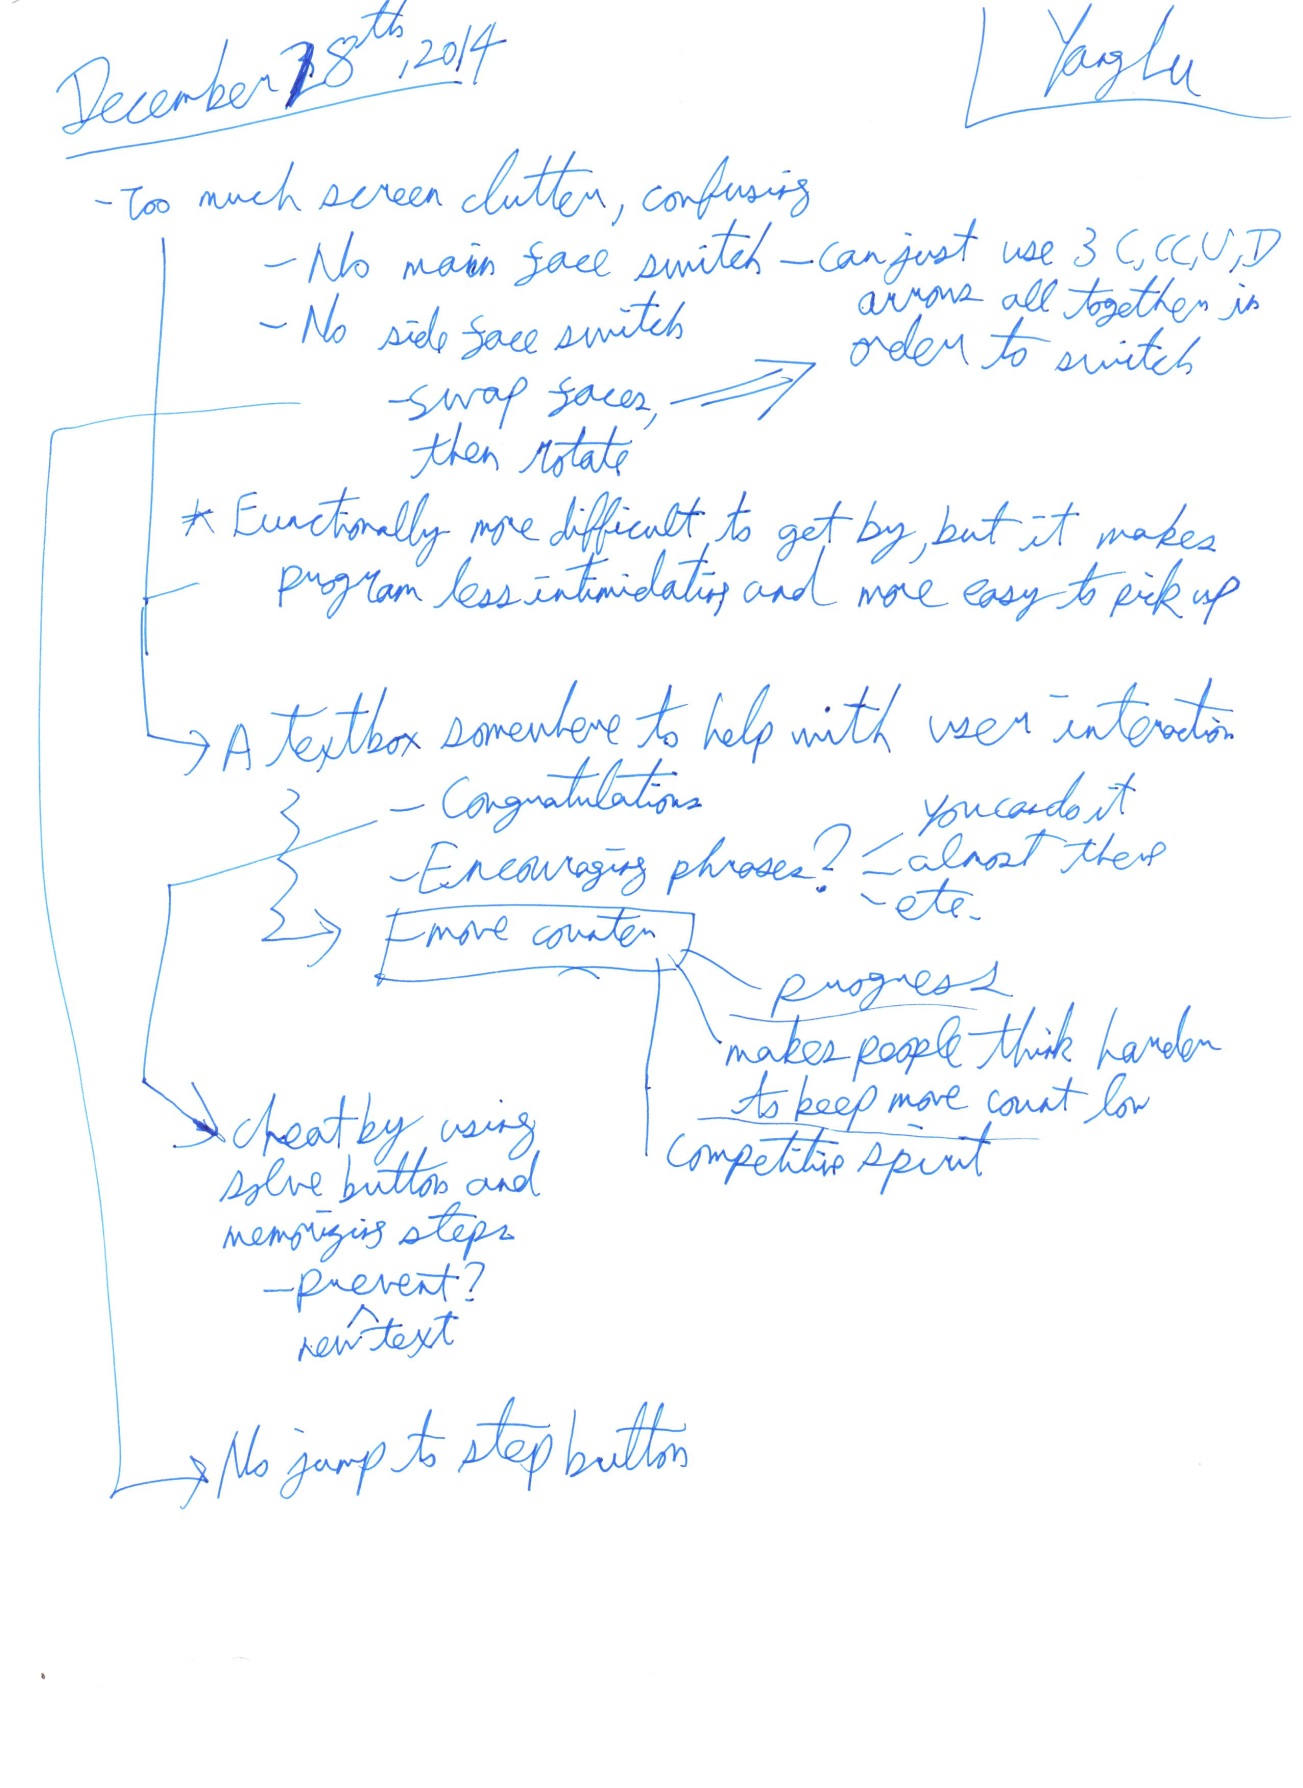 December 28th, 2014
Yang Lu
- Too much screen clutter, confusing
- No main face switch - can just use 3 C, CC, U, D
arrows all together in
order to switch
- No side face switch
- swap faces,
then rotate
* Functionally more difficult to get by, but it makes
program less intimidating and more easy to pick up
A textbox somewhere to help with user interaction
- Congratulations
- Encouraging phrases?
you can do it
- almost there
- etc.
- move counter
progress
makes people think harder
to keep move count low
competitive spirit
cheat by using
solve button and
memorizing steps
- prevent?
new text
No jump to step button